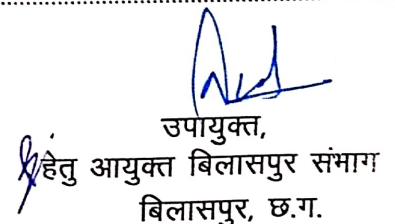 उपायुक्त,
हेतु आयुक्त बिलासपुर संभाग
बिलासपुर, छ.ग.